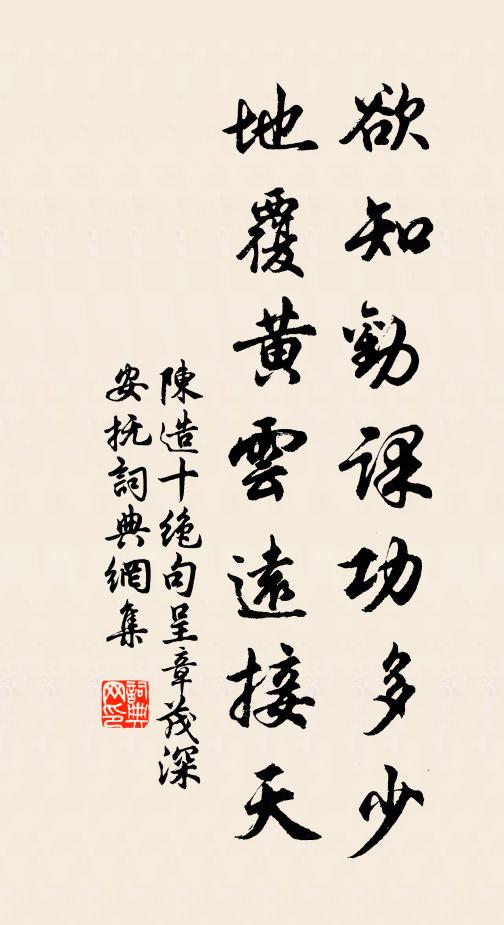 欲知勸課功多少
地覆黃雲遠接天
陳造十絶句呈章茂深
安抚詞典網集
詞典网印